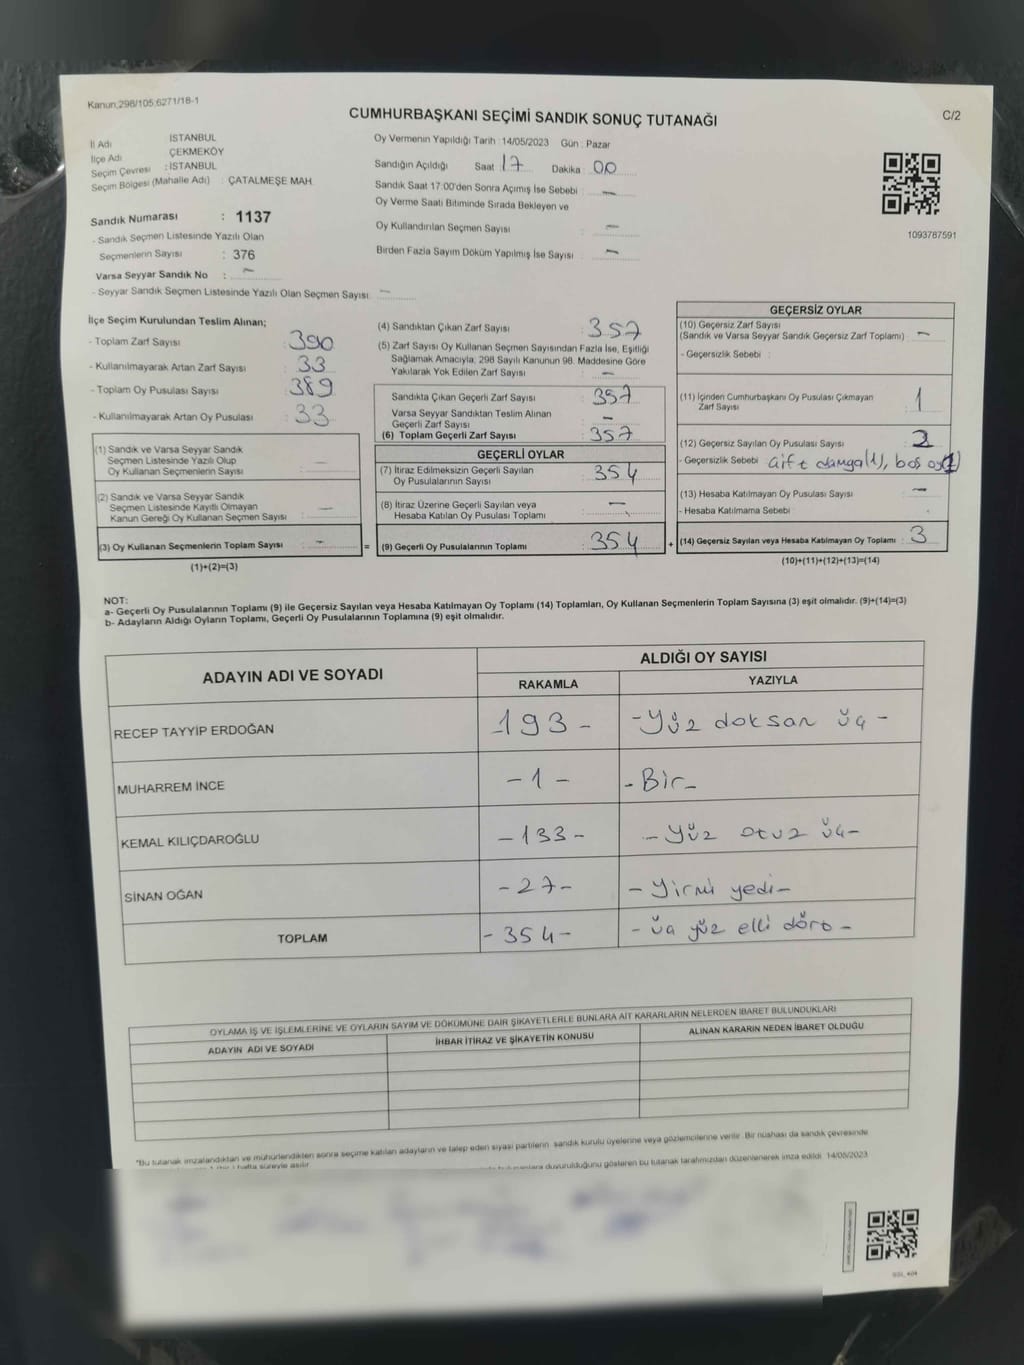 Kanun;298/105;6271/18-1
CUMHURBAŞKANI SEÇİMİ SANDIK SONUÇ TUTANAĞI
C/2
İl Adı İSTANBUL
İlçe Adı ÇEKMEKÖY
Seçim Çevresi : İSTANBUL
Seçim Bölgesi (Mahalle Adı) : ÇATALMEŞE MAH.
Sandık Numarası : 1137
- Sandık Seçmen Listesinde Yazılı Olan
Seçmenlerin Sayısı : 376
Varsa Seyyar Sandık No : -
- Seyyar Sandık Seçmen Listesinde Yazılı Olan Seçmen Sayısı: -
Oy Vermenin Yapıldığı Tarih : 14/05/2023 Gün : Pazar
Sandığın Açıldığı Saat 17 Dakika : 00
Sandık Saat 17:00'den Sonra Açılmış İse Sebebi : -
Oy Verme Saati Bitiminde Sırada Bekleyen ve
Oy Kullandırılan Seçmen Sayısı : -
Birden Fazla Sayım Döküm Yapılmış İse Sayısı : -
1093787591
İlçe Seçim Kurulundan Teslim Alınan;
- Toplam Zarf Sayısı : 390
- Kullanılmayarak Artan Zarf Sayısı : 33
- Toplam Oy Pusulası Sayısı : 389
- Kullanılmayarak Artan Oy Pusulası : 33
(1) Sandık ve Varsa Seyyar Sandık
Seçmen Listesinde Yazılı Olup
Oy Kullanan Seçmenlerin Sayısı : -
(2) Sandık ve Varsa Seyyar Sandık
Seçmen Listesinde Kayıtlı Olmayan
Kanun Gereği Oy Kullanan Seçmen Sayısı : -
(3) Oy Kullanan Seçmenlerin Toplam Sayısı : -
(1)+(2)=(3)
(4) Sandıktan Çıkan Zarf Sayısı : 357
(5) Zarf Sayısı Oy Kullanan Seçmen Sayısından Fazla İse, Eşitliği
Sağlamak Amacıyla, 298 Sayılı Kanunun 98. Maddesine Göre
Yakılarak Yok Edilen Zarf Sayısı : -
Sandıkta Çıkan Geçerli Zarf Sayısı : 357
Varsa Seyyar Sandıktan Teslim Alınan
Geçerli Zarf Sayısı : -
(6) Toplam Geçerli Zarf Sayısı : 357
GEÇERLİ OYLAR
(7) İtiraz Edilmeksizin Geçerli Sayılan
Oy Pusulalarının Sayısı : 354
(8) İtiraz Üzerine Geçerli Sayılan veya
Hesaba Katılan Oy Pusulası Toplamı : -
= (9) Geçerli Oy Pusulalarının Toplamı : 354 +
GEÇERSİZ OYLAR
(10) Geçersiz Zarf Sayısı
(Sandık ve Varsa Seyyar Sandık Geçersiz Zarf Toplamı) : -
- Geçersizlik Sebebi :
(11) İçinden Cumhurbaşkanı Oy Pusulası Çıkmayan
Zarf Sayısı : 1
(12) Geçersiz Sayılan Oy Pusulası Sayısı : 2
- Geçersizlik Sebebi : çift damga(1), boş oy(1)
(13) Hesaba Katılmayan Oy Pusulası Sayısı : -
- Hesaba Katılmama Sebebi :
(14) Geçersiz Sayılan veya Hesaba Katılmayan Oy Toplamı : 3
(10)+(11)+(12)+(13)=(14)
NOT:
a- Geçerli Oy Pusulalarının Toplamı (9) ile Geçersiz Sayılan veya Hesaba Katılmayan Oy Toplamı (14) Toplamları, Oy Kullanan Seçmenlerin Toplam Sayısına (3) eşit olmalıdır. (9)+(14)=(3)
b- Adayların Aldığı Oyların Toplamı, Geçerli Oy Pusulalarının Toplamına (9) eşit olmalıdır.
ADAYIN ADI VE SOYADI ALDIĞI OY SAYISI
RAKAMLA YAZIYLA
RECEP TAYYİP ERDOĞAN -193- -Yüz doksan üç-
MUHARREM İNCE -1- -Bir-
KEMAL KILIÇDAROĞLU -133- -Yüz otuz üç-
SİNAN OĞAN -27- -Yirmi yedi-
TOPLAM -354- -üç yüz elli dört-
OYLAMA İŞ VE İŞLEMLERİNE VE OYLARIN SAYIM VE DÖKÜMÜNE DAİR ŞİKAYETLERLE BUNLARA AİT KARARLARIN NELERDEN İBARET BULUNDUKLARI
ADAYIN ADI VE SOYADI İHBAR İTİRAZ VE ŞİKAYETİN KONUSU ALINAN KARARIN NEDEN İBARET OLDUĞU
*Bu tutanak imzalandıktan ve mühürlendikten sonra seçime katılan adayların ve talep eden siyasi partilerin sandık kurulu üyelerine veya gözlemcilerine verilir. Bir nüshası da sandık çevresinde
hafta süreyle asılır. duyurulduğunu gösteren bu tutanak tarafımızdan düzenlenerek imza edildi. 14/05/2023